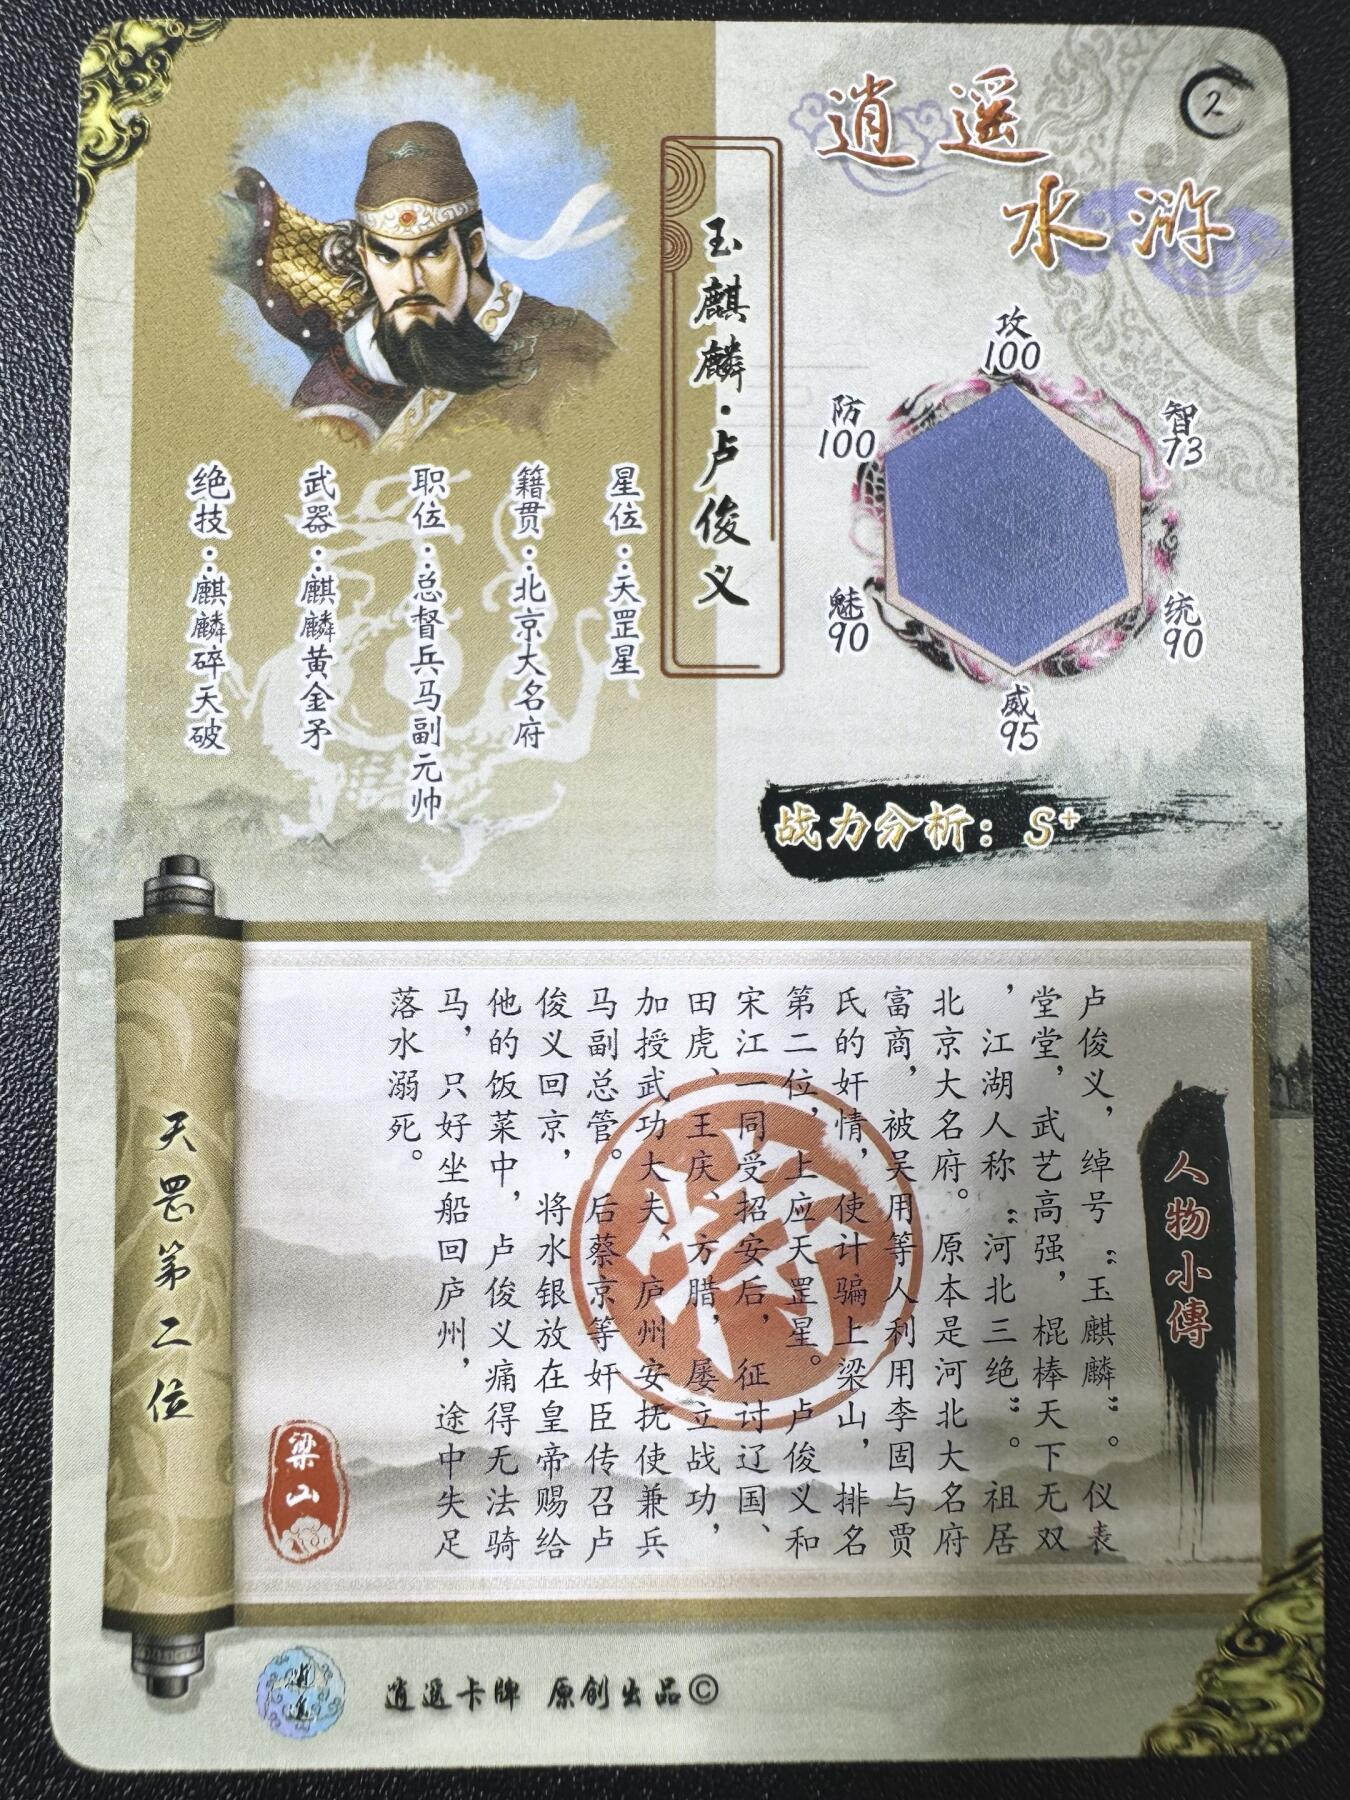 逍遥
水浒
2
玉麒麟·卢俊义
星位：天罡星
籍贯：北京大名府
职位：总督兵马副元帅
武器：麒麟黄金矛
绝技：麒麟碎天破
攻
100
防
100
智
73
魅
90
统
90
威
95
战力分析：S+
人物小傳
卢俊义，绰号“玉麒麟”。仪表
堂堂，武艺高强，棍棒天下无双
，江湖人称“河北三绝”。祖居
北京大名府。原本是河北大名府
富商，被吴用等人利用李固与贾
氏的奸情，使计骗上梁山，排名
第二位，上应天罡星。卢俊义和
宋江一同受招安后，征讨辽国、
田虎、王庆、方腊，屡立战功，
加授武功大夫、庐州安抚使兼兵
马副总管。后蔡京等奸臣传召卢
俊义回京，将水银放在皇帝赐给
他的饭菜中，卢俊义痛得无法骑
马，只好坐船回庐州，途中失足
落水溺死。
将
天罡第二位
梁山
逍遥
逍遥卡牌 原创出品©